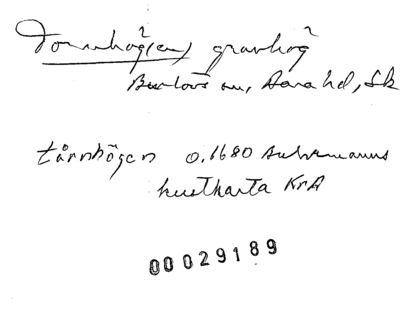 Tornhög(en) gravhög
Burlövs sn, Bara hd, Sk
tårnhögen o. 1680 Buhrmanns
kustkarta KrA
00029189